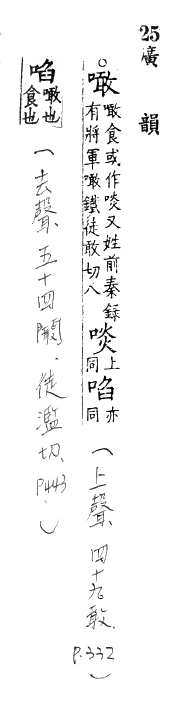 25廣韻
○噉噉食或作啖又姓前秦錄有將軍噉鐵徒敢切八啖上同啗亦同(上聲、四十九敢. P.332)
啗噉也食也(去聲、五十四闞.徒濫切、P443.)